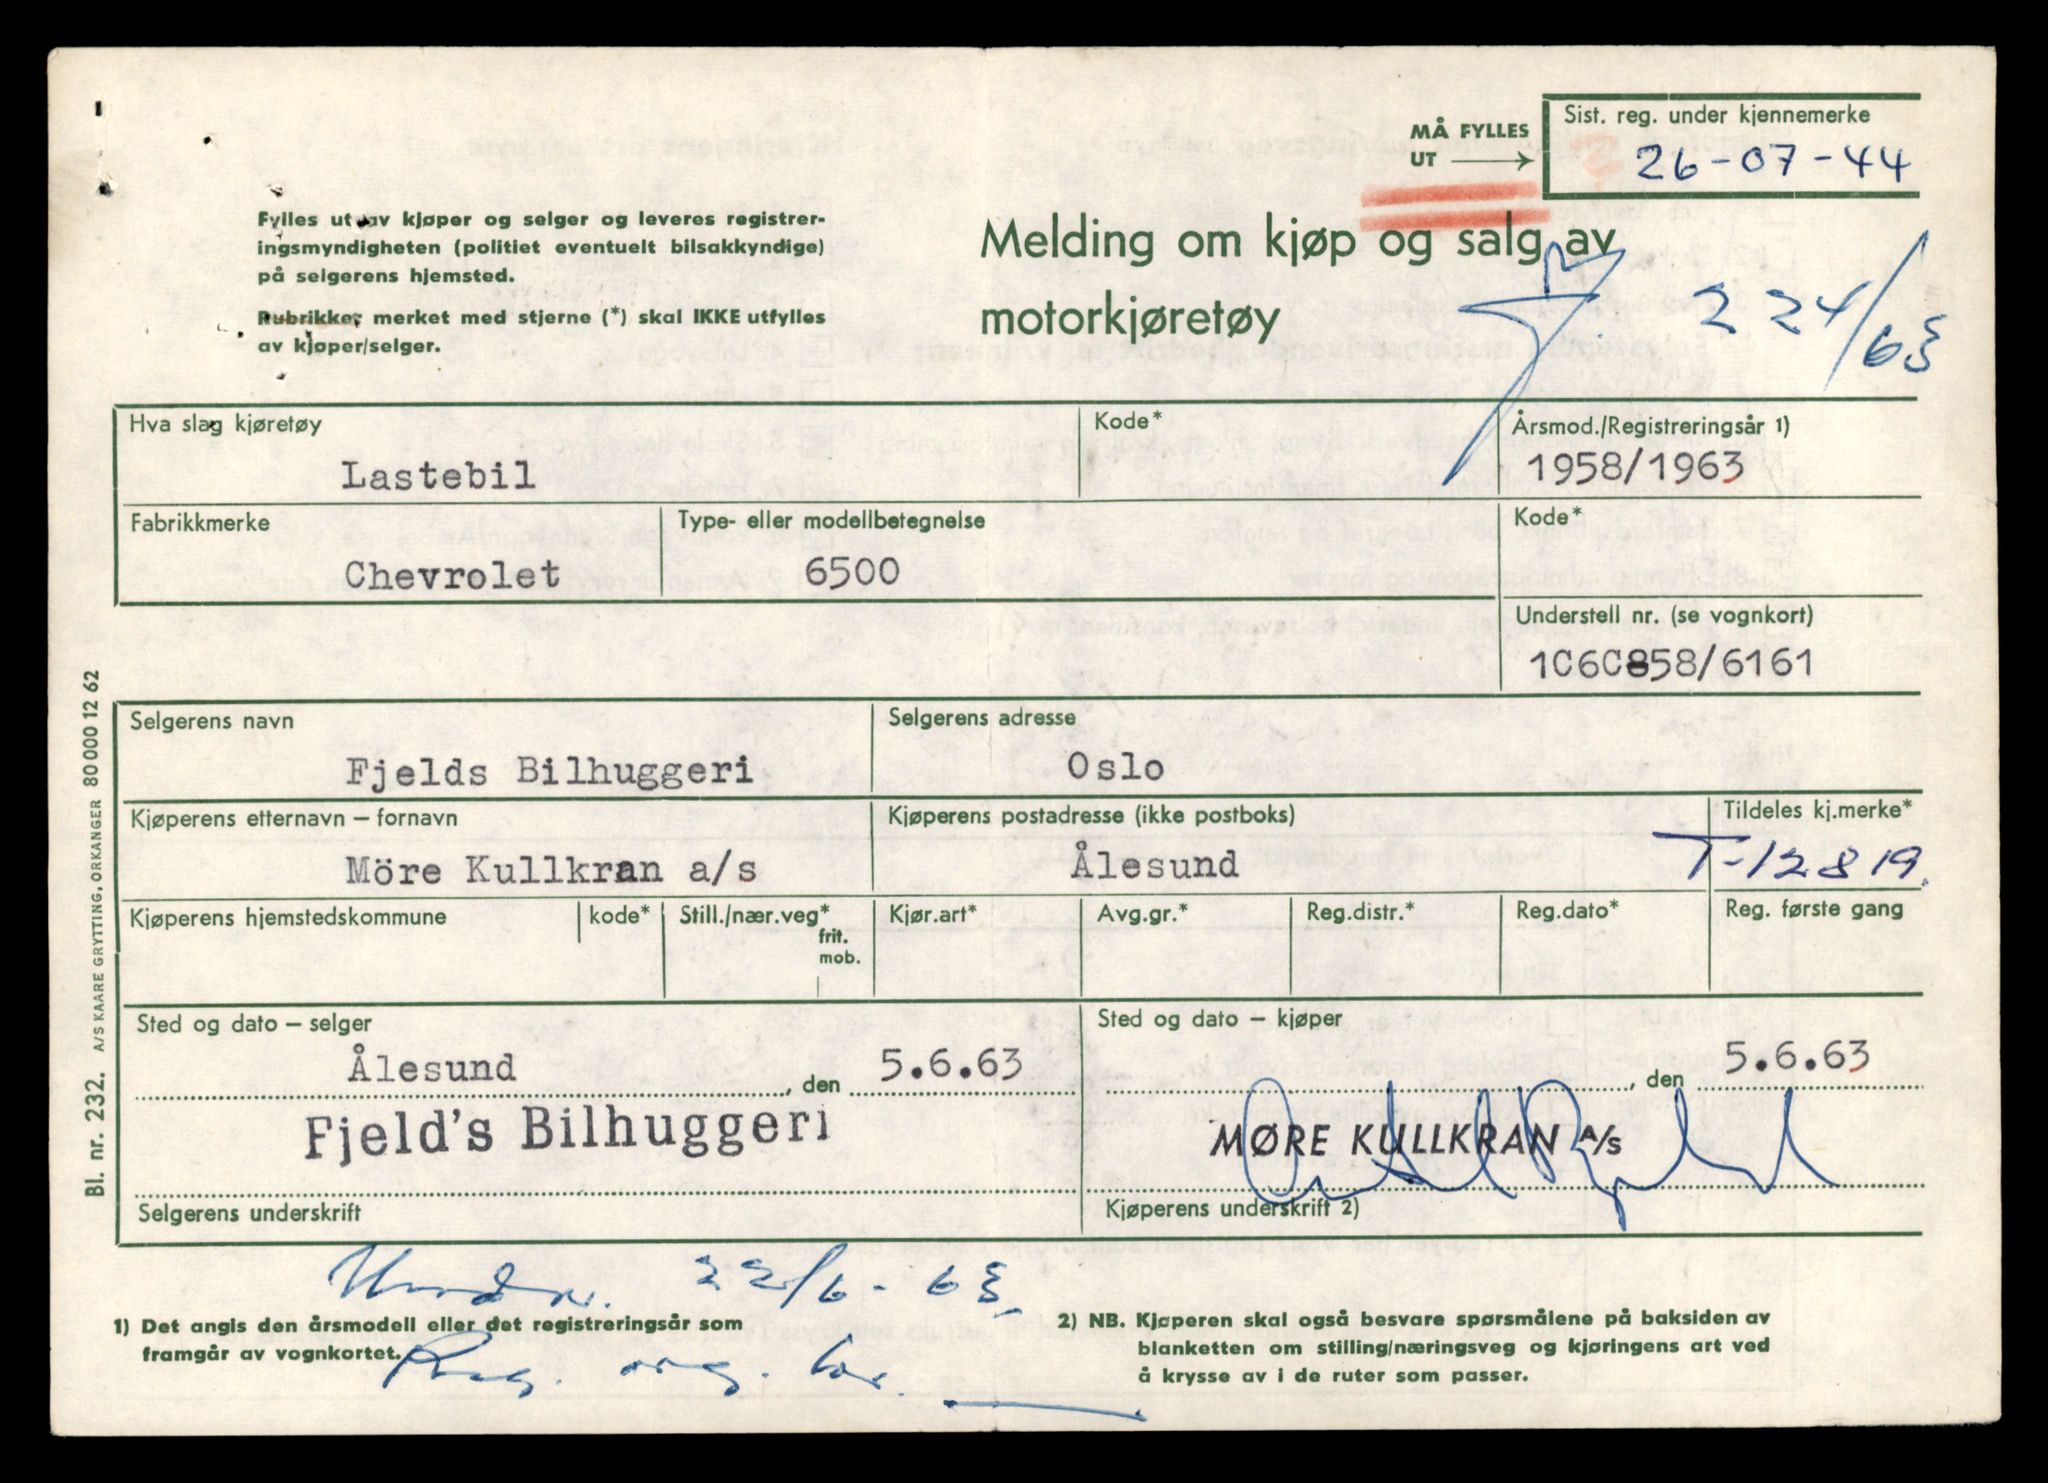 MÅ FYLLES
UT
Sist. reg. under kjennemerke
26-07-44
Fylles ut av kjøper og selger og leveres registrer-
ingsmyndigheten (politiet eventuelt bilsakkyndige)
på selgerens hjemsted.
Rubrikker merket med stjerne (*) skal IKKE utfylles
av kjøper/selger.
Melding om kjøp og salg av
motorkjøretøy
Hva slag kjøretøy
Lastebil
Kode*
Årsmod./Registreringsår 1)
1958/1963
Fabrikkmerke
Chevrolet
Type- eller modellbetegnelse
6500
Kode*
Understell nr. (se vognkort)
1C6C858/6161
Selgerens navn
Fjelds Bilhuggeri
Selgerens adresse
Oslo
Kjøperens etternavn – fornavn
Möre Kullkran a/s
Kjøperens postadresse (ikke postboks)
Ålesund
Tildeles kj.merke*
T-12819
Kjøperens hjemstedskommune
kode*
Still./nær.veg*
frit.
mob.
Kjør.art*
Avg.gr.*
Reg.distr.*
Reg.dato*
Reg. første gang
Sted og dato – selger
Ålesund, den 5.6.63
Fjeld's Bilhuggeri
Selgerens underskrift
Sted og dato – kjøper
, den 5.6.63
MØRE KULLKRAN A/S
Kjøperens underskrift 2)
22/6-63
1) Det angis den årsmodell eller det registreringsår som
framgår av vognkortet.
Reg. avg. bet.
2) NB. Kjøperen skal også besvare spørsmålene på baksiden av
blanketten om stilling/næringsveg og kjøringens art ved
å krysse av i de ruter som passer.
Bl. nr. 232. A/S KAARE GRYTTING, ORKANGER 80000 12 62